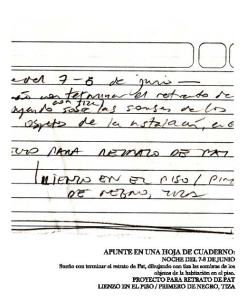 del 7-8 de junio
con terminar el retrato de
con tiza
sobre las sombras de los
objetos de la instalación, en e
PARA RETRATO DE PAT
LIENZO EN EL PISO / PIM
DE NEGRO, TIZA
APUNTE EN UNA HOJA DE CUADERNO:
NOCHE DEL 7-8 DE JUNIO
Sueño con terminar el retrato de Pat, dibujando con tiza las sombras de los
objetos de la habitación en el piso.
PROYECTO PARA RETRATO DE PAT
LIENZO EN EL PISO / PRIMERO DE NEGRO, TIZA